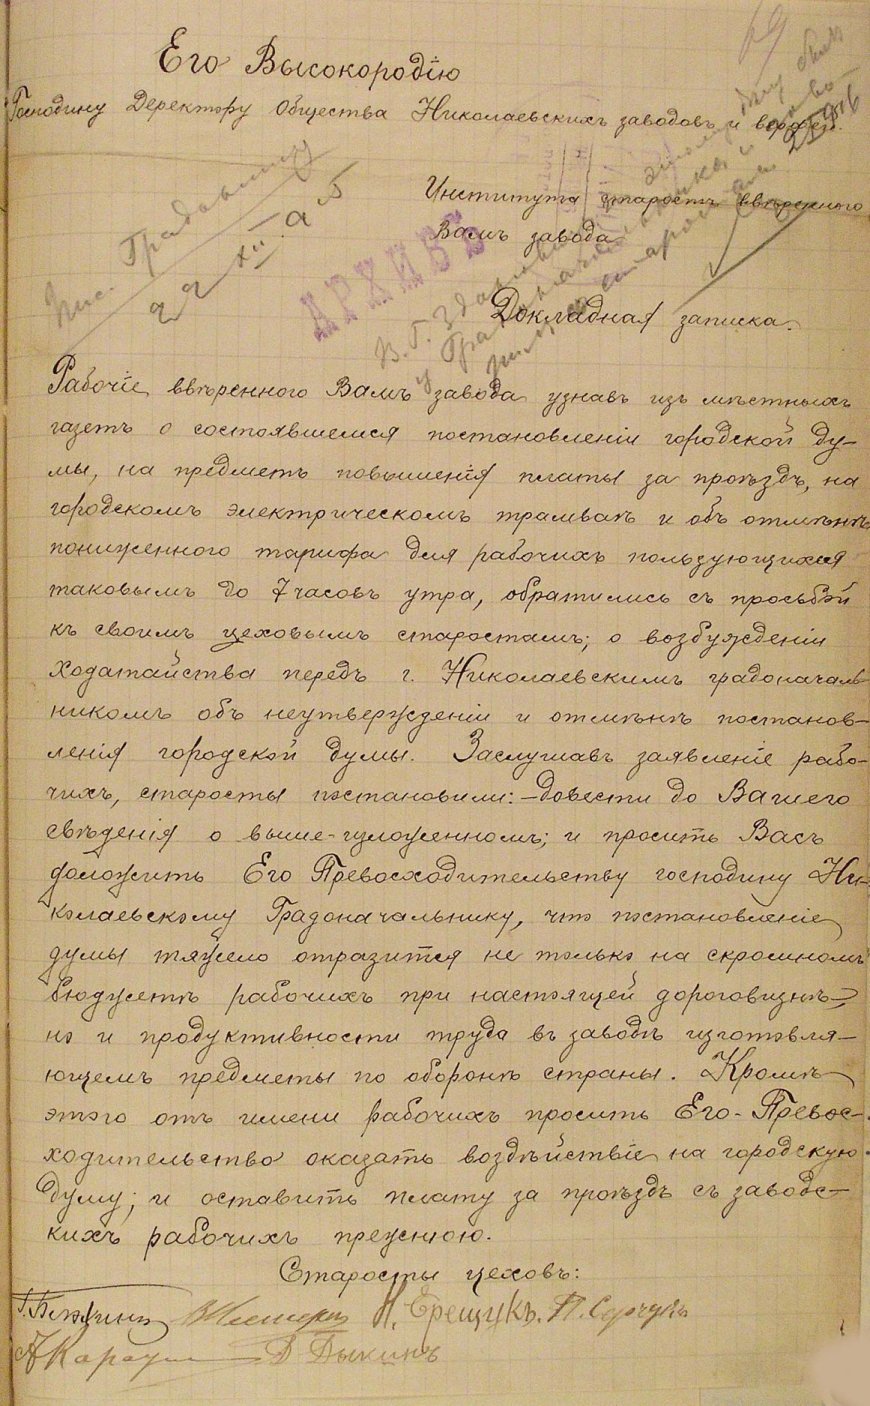 Его Высокородію
Господину Деректору Общества Николаевскихъ заводовъ и верфей.
Института старостъ ввѣренного
Вамъ завода
АРХИВЪ
Докладная записка.
Рабочіе ввѣренного Вамъ завода узнавъ изъ мѣстныхъ
газетъ о состоявшемся постановленіи городской Ду-
мы, на предметъ повышенія платы за проѣздъ, на
городскомъ электрическомъ трамваѣ и объ отмѣнѣ
пониженного тарифа для рабочихъ пользующихся
таковымъ до 7 часовъ утра, обратились съ просьбой
къ своимъ цеховымъ старостамъ; о возбужденіи
ходатайства передъ г. Николаевскимъ градоначаль-
никомъ объ неутвержденіи и отмѣнѣ постанов-
ленія городской думы. Заслушавъ заявленіе рабо-
чихъ, старосты постановили: – довести до Вашего
свѣденія о выше-изложенномъ; и просить Васъ
доложить Его Превосходительству господину Ни-
колаевскому Градоначальнику, что постановленіе
думы тяжело отразится не только на скромномъ
бюджетѣ рабочихъ при настоящей дороговизнѣ,
но и продуктивности труда въ заводѣ изготовля-
ющемъ предметы по оборонѣ страны. Кромѣ
этого отъ имени рабочихъ просить Его-Превос-
ходительство оказать воздѣйствіе на городскую
Думу; и оставить плату за проѣздъ съ заводс-
кихъ рабочихъ прежнюю.
Старосты цеховъ:
Н. Ерещукъ. П. Сурчукъ
Д Пыкинъ